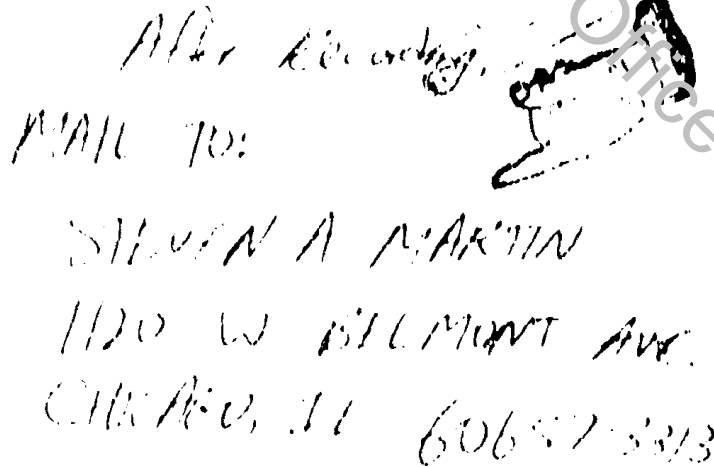 After Recording,
MAIL TO:
STEVEN A MARTIN
1120 W BELMONT AVE.
CHICAGO, IL 60657-3313
Office